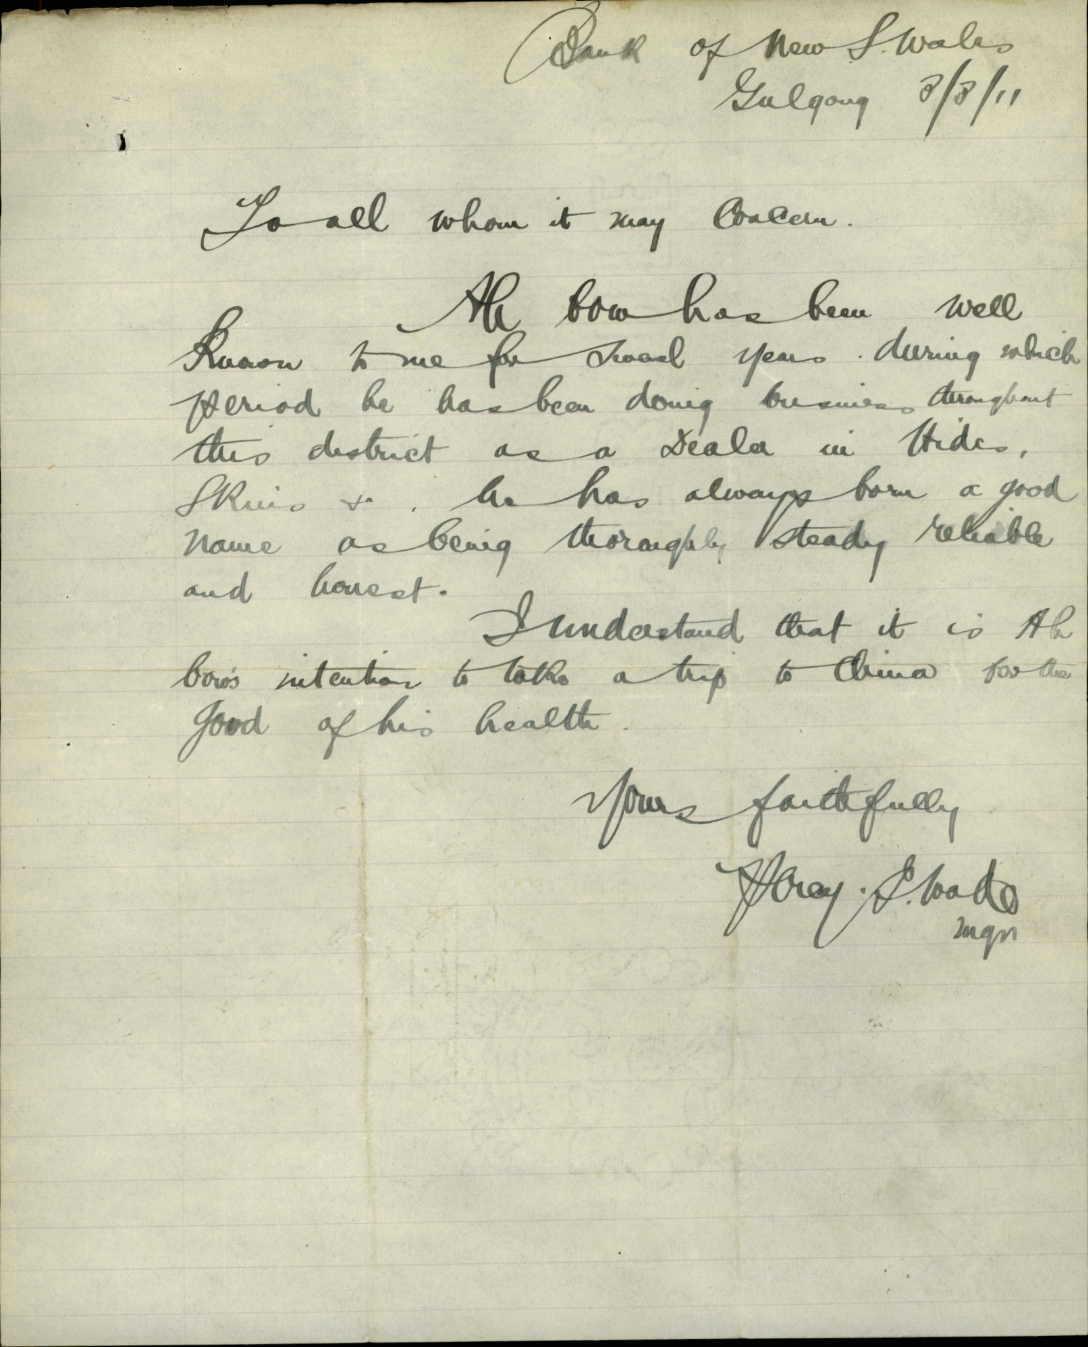 Bank of New S. Wales
Gulgong 8/8/11
To all whom it may Concern.
Ah bow has been well
Known to me for several years. during which
period he has been doing business throughout
this district as a Dealer in Hides,
Skins &c. he has always born a good
name as being thoroughly steady reliable
and honest.
I understand that it is Ah
bow's intention to take a trip to China for the
good of his health.
Yours faithfully
S. Wade
mgr